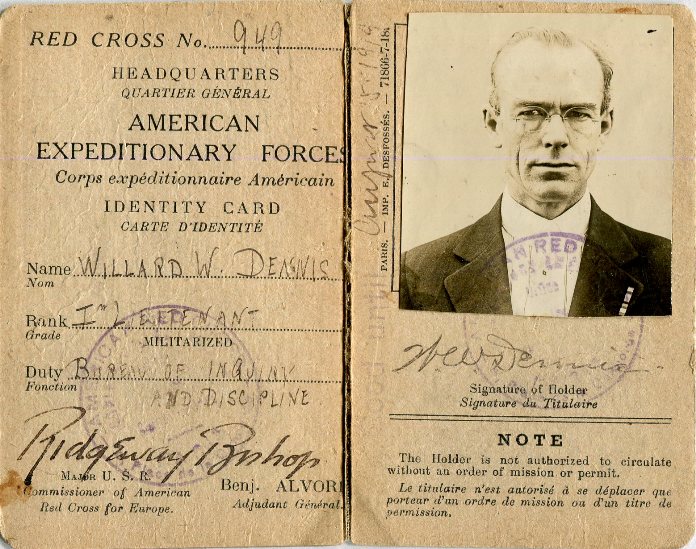 RED CROSS No. 949
HEADQUARTERS
QUARTIER GÉNÉRAL
AMERICAN
EXPEDITIONARY FORCES
Corps expéditionnaire Américain
IDENTITY CARD
CARTE D'IDENTITÉ
Name WILLARD W. DENNIS
Nom
Rank 1st LIEUTENANT
Grade
MILITARIZED
Duty BUREAU OF INQUIRY
Fonction
AND DISCIPLINE
Ridgeway Bishop
MAJOR U. S. R.
Commissioner of American
Red Cross for Europe.
Benj. ALVORD
Adjudant Général.
PARIS. — IMP. E. DESFOSSÉS. — 71806-7-18.
Signature of Holder
Signature du Titulaire
NOTE
The Holder is not authorized to circulate
without an order of mission or permit.
Le titulaire n'est autorisé à se déplacer que
porteur d'un ordre de mission ou d'un titre de
permission.